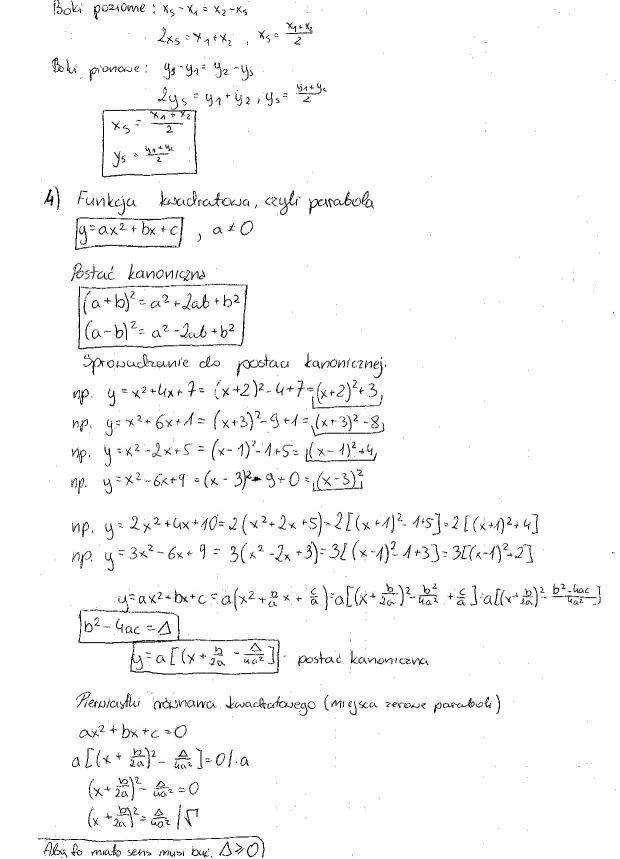 Boki poziome: x_s - x_1 = x_2 - x_s
2x_s = x_1 + x_2 , x_s = (x_1 + x_2)/2
Boki pionowe: y_s - y_1 = y_2 - y_s
2y_s = y_1 + y_2 , y_s = (y_1 + y_2)/2
x_s = (x_1 + x_2)/2
y_s = (y_1 + y_2)/2
4) Funkcja kwadratowa, czyli parabola
y = ax² + bx + c , a ≠ 0
Postać kanoniczna
(a+b)² = a² + 2ab + b²
(a-b)² = a² - 2ab + b²
Sprowadzanie do postaci kanonicznej.
np. y = x² + 4x + 7 = (x+2)² - 4 + 7 = (x+2)² + 3
np. y = x² + 6x + 1 = (x+3)² - 9 + 1 = (x+3)² - 8
np. y = x² - 2x + 5 = (x-1)² - 1 + 5 = (x-1)² + 4
np. y = x² - 6x + 9 = (x-3)² - 9 + 0 = (x-3)²
np. y = 2x² + 4x + 10 = 2(x² + 2x + 5) = 2[(x+1)² - 1 + 5] = 2[(x+1)² + 4]
np. y = 3x² - 6x + 9 = 3(x² - 2x + 3) = 3[(x-1)² - 1 + 3] = 3[(x-1)² + 2]
y = ax² + bx + c = a(x² + b/a x + c/a) = a[(x + b/2a)² - b²/4a² + c/a] = a[(x + b/2a)² - (b² - 4ac)/4a²]
b² - 4ac = Δ
y = a[(x + b/2a - Δ/4a²] - postać kanoniczna
Pierwiastki równania kwadratowego (miejsca zerowe paraboli)
ax² + bx + c = 0
a[(x + b/2a)² - Δ/4a²] = 0 /·a
(x + b/2a)² - Δ/4a² = 0
(x + b/2a)² = Δ/4a² /√
Aby to miało sens musi być Δ ≥ 0